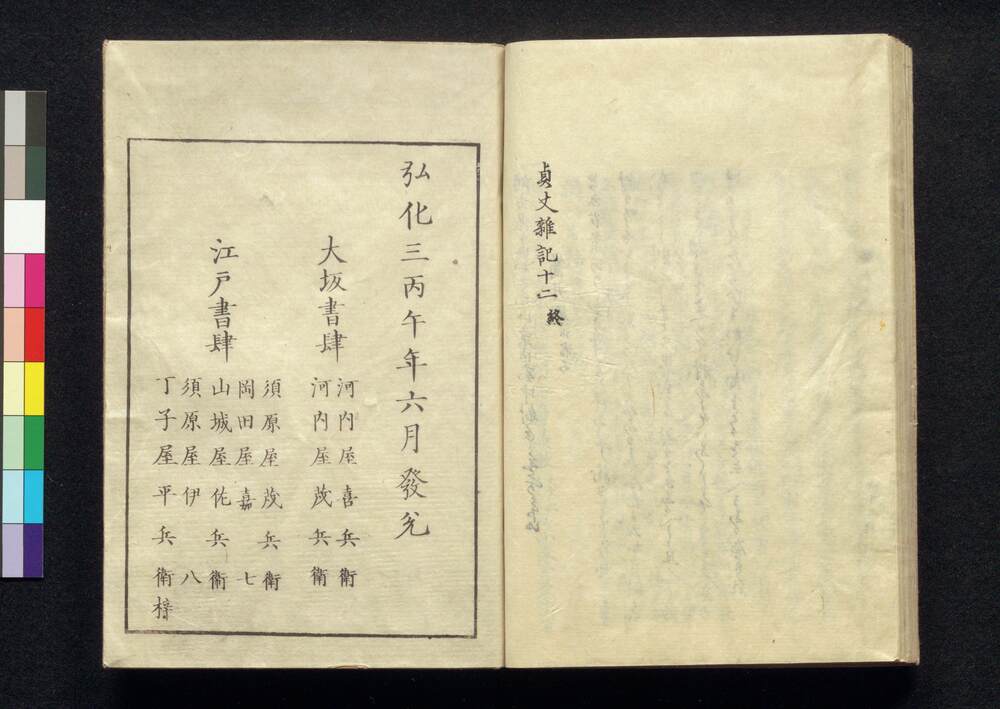 貞丈雜記十二終
弘化三丙午年六月發兌
大坂書肆
河内屋喜兵衛
河内屋茂兵衛
江戸書肆
須原屋茂兵衛
岡田屋嘉七
山城屋佐兵衛
須原屋伊八
丁子屋平兵衛梓